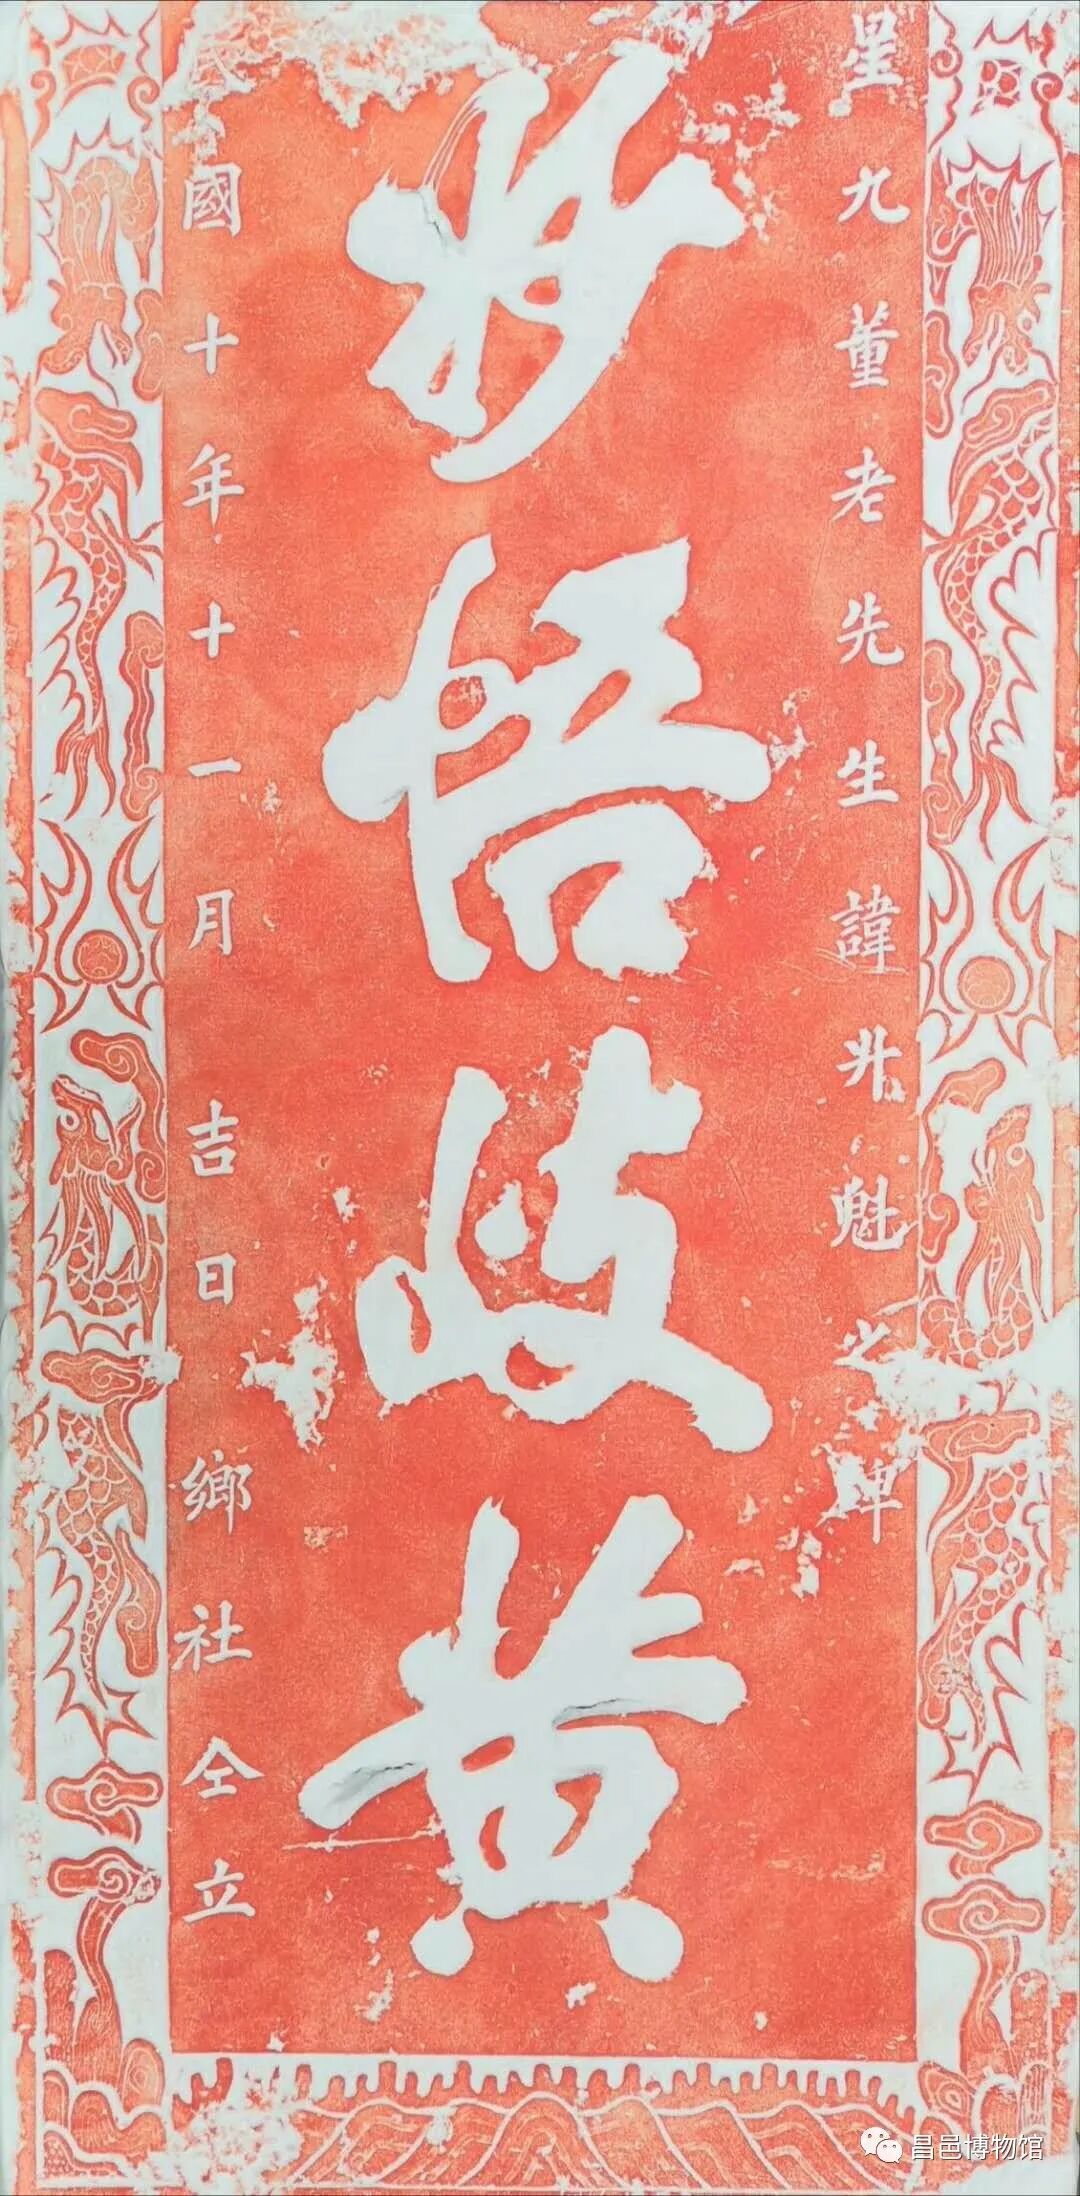 星九董老先生諱兆魁之碑
妙悟岐黄
民國十年十一月吉日鄉社仝立
昌邑博物馆